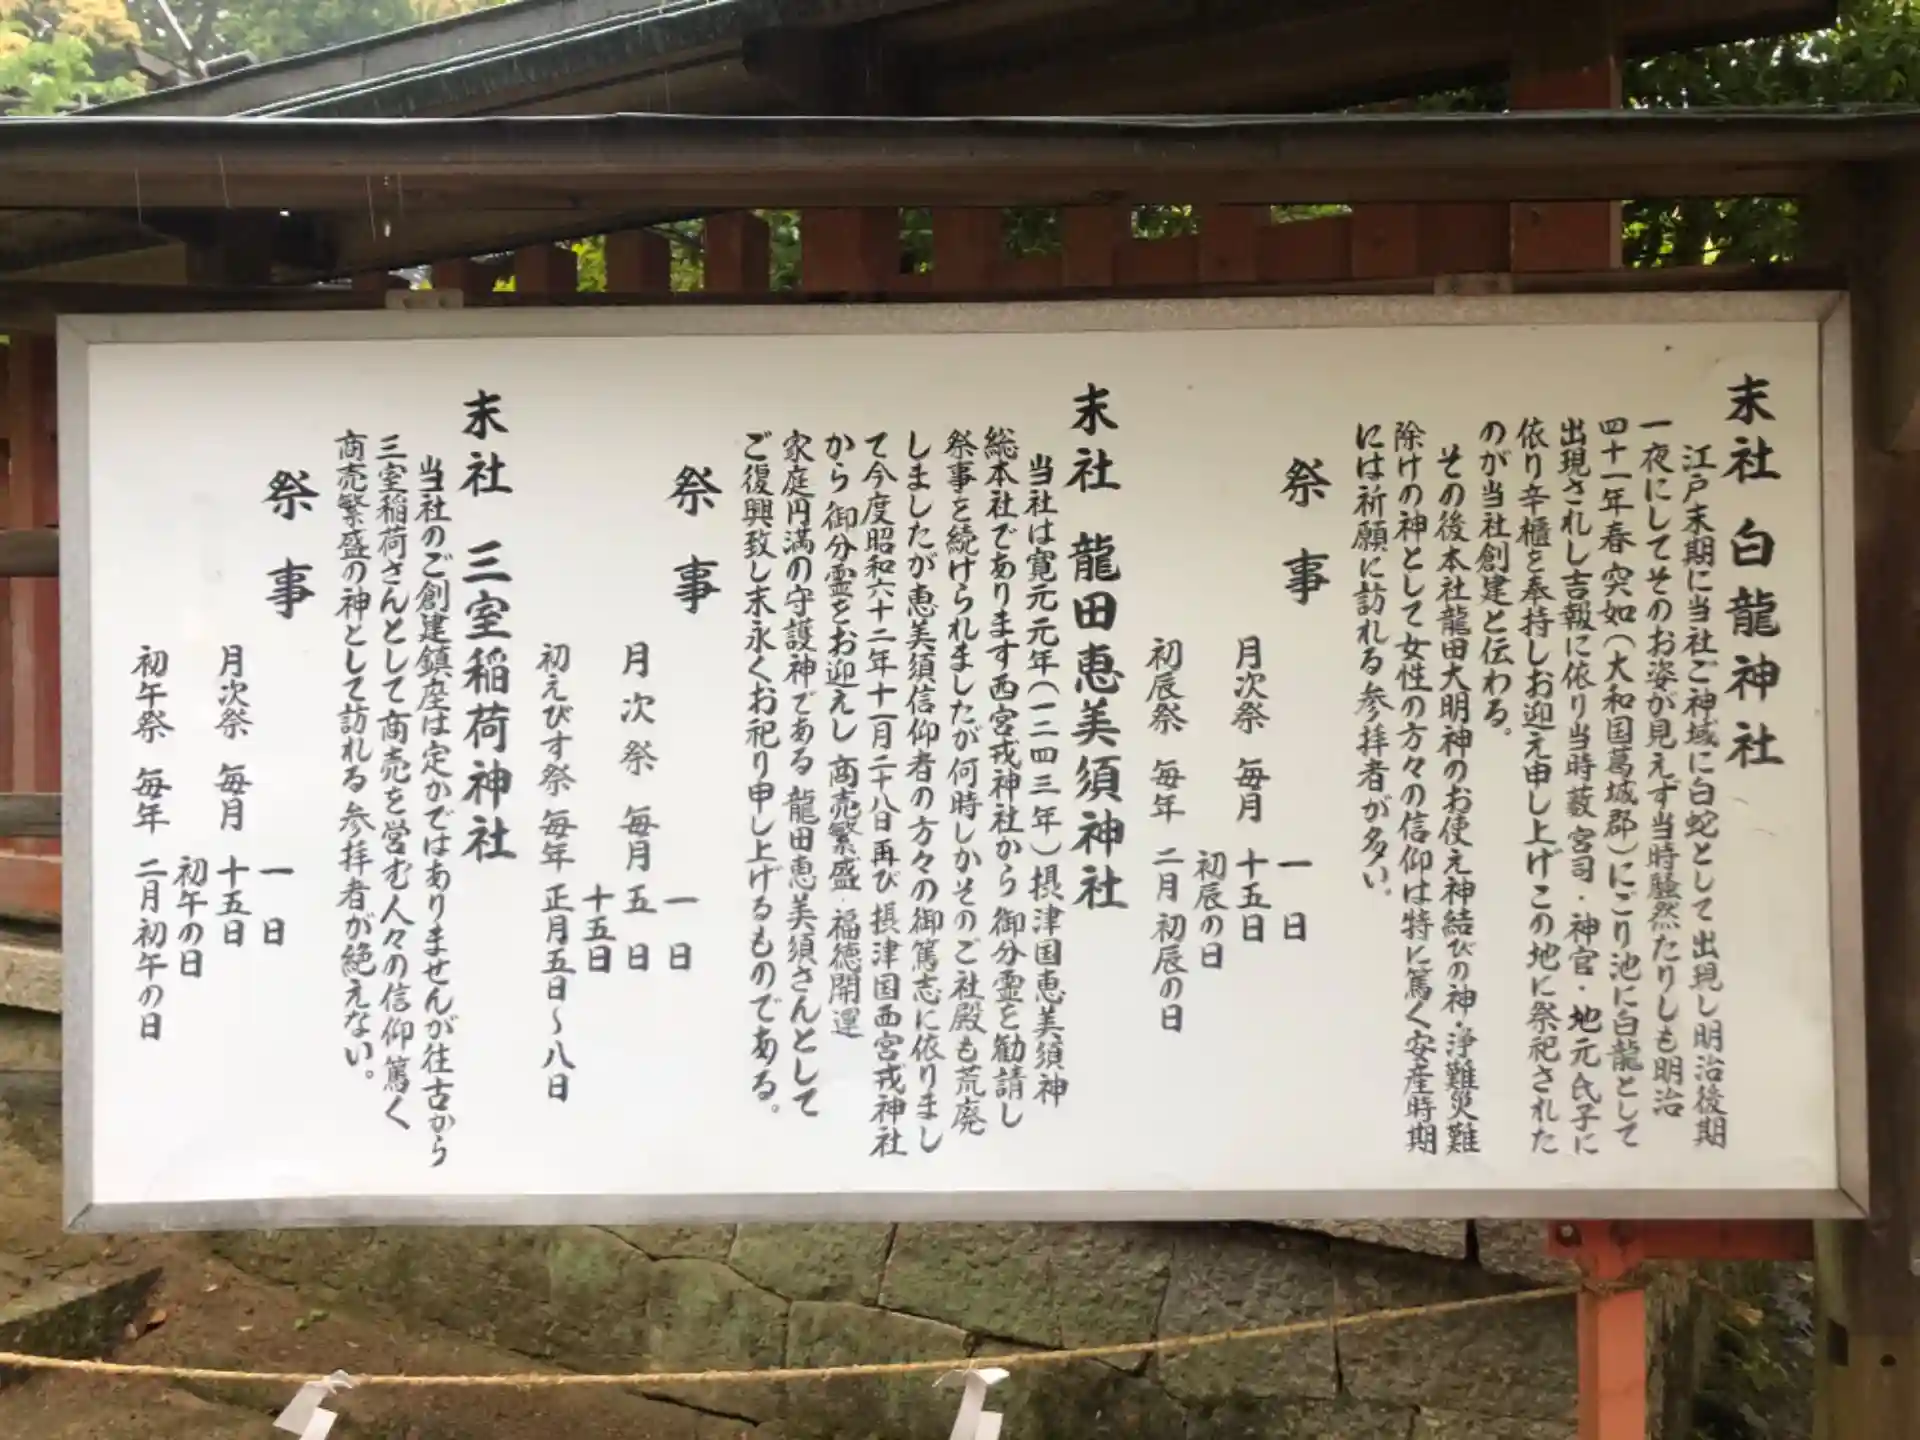 末社 白龍神社
江戸末期に当社ご神域に白蛇として出現し明治後期
一夜にしてそのお姿が見えず当時騒然たりしも明治
四十一年春突如(大和国葛城郡)にごり池に白龍として
出現されし吉報に依り当時藪宮司・神官・地元氏子に
依り辛櫃を奉持しお迎え申し上げこの地に祭祀された
のが当社創建と伝わる。
その後本社龍田大明神のお使え神結びの神・浄難災難
除けの神として女性の方々の信仰は特に篤く安産時期
には祈願に訪れる参拝者が多い。
祭事
一日
月次祭 毎月 十五日
初辰の日
初辰祭 毎年 二月 初辰の日
末社 龍田恵美須神社
当社は寛元元年(一二四三年)摂津国恵美須神
総本社であります西宮戎神社から御分霊を勧請し
祭事を続けられましたが何時しかそのご社殿も荒廃
しましたが恵美須信仰者の方々の御篤志に依りまし
て今度昭和六十二年十一月二十八日再び摂津国西宮戎神社
から御分霊をお迎えし商売繁盛・福徳開運
家庭円満の守護神である龍田恵美須さんとして
ご復興致し末永くお祀り申し上げるものである。
祭事
一日
月次祭 毎月 五日
十五日
初えびす祭 毎年 正月五日~八日
末社 三室稲荷神社
当社のご創建鎮座は定かではありませんが往古から
三室稲荷さんとして商売を営む人々の信仰篤く
商売繁盛の神として訪れる参拝者が絶えない。
祭事
一日
月次祭 毎月 十五日
初午の日
初午祭 毎年 二月初午の日